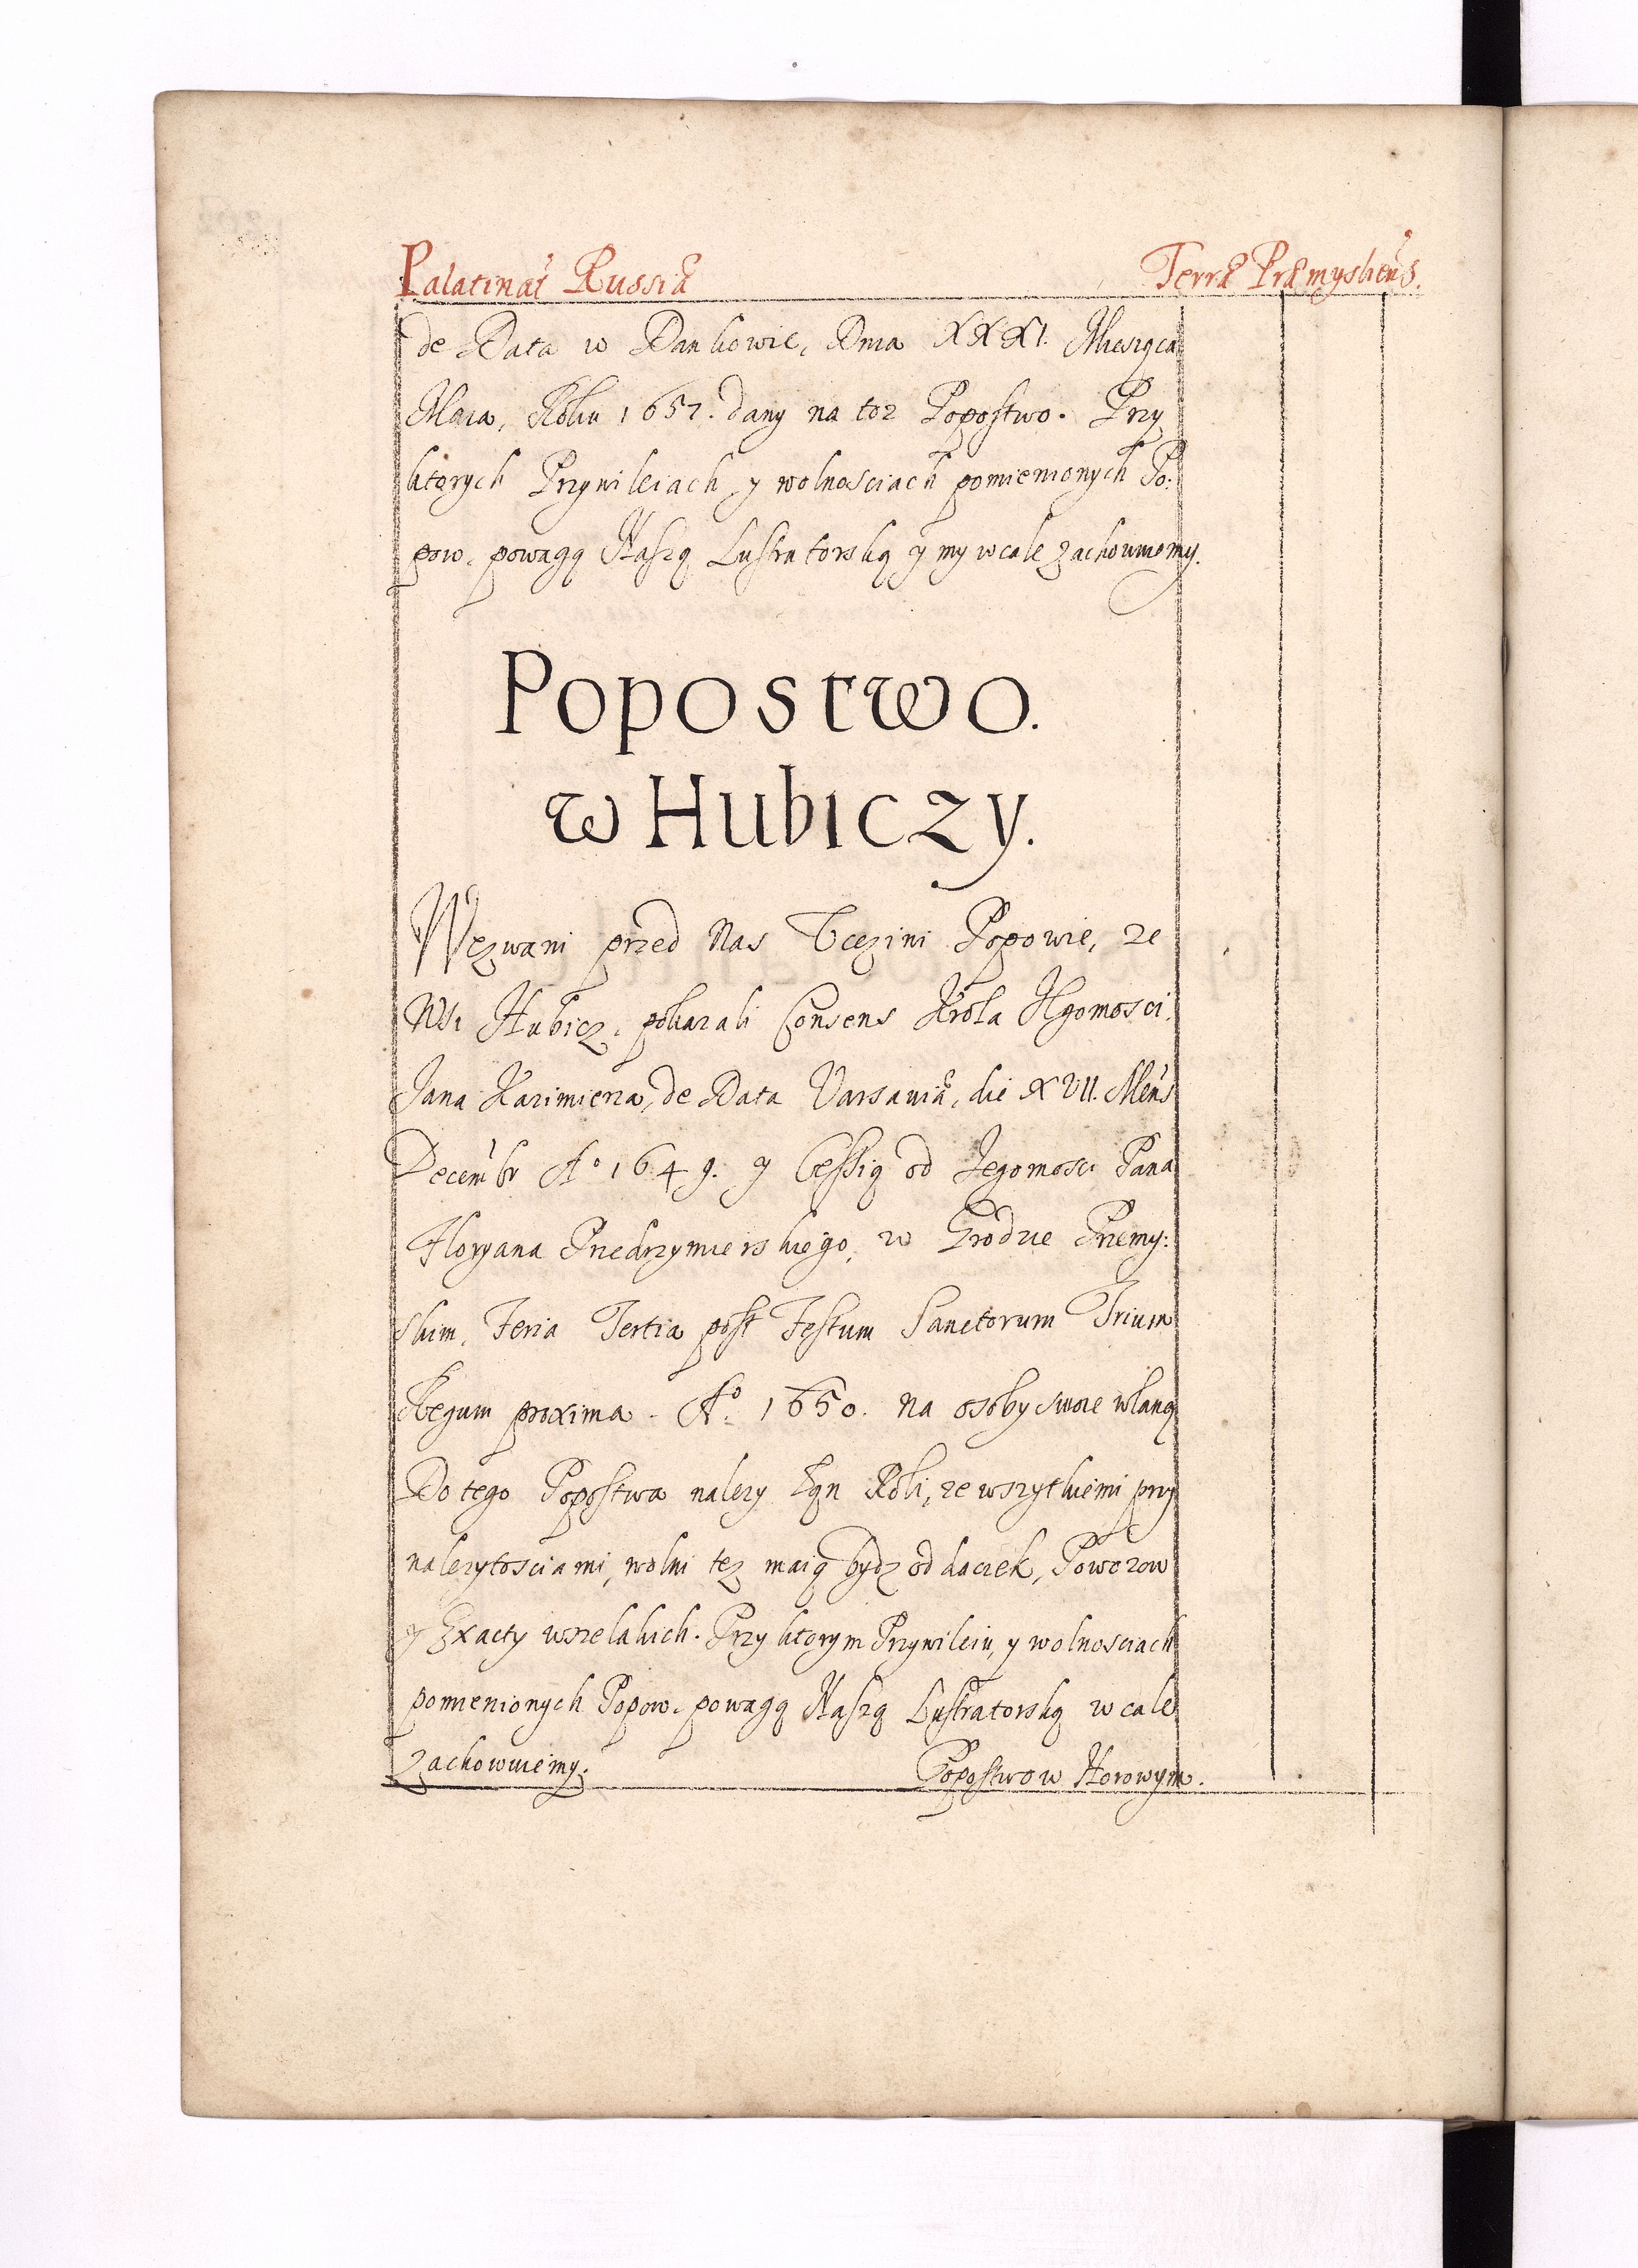 Palatinat Russiæ
Terræ Præmysliens.
de Data w Dankowie, Dnia XXXI. Miesiąca
Maia, Roku 1657. dany na toz Popostwo. Przy
ktorych Przywileiach y wolnosciach pomienionych Po:
pow, powagą Naszą Lustratorską y my wcale zachowuiemy.
Popostwo.
w Hubiczy.
Wezwani przed Nas Uczciwi Popowie, ze
Wsi Hubicz, pokazali Consens Krola Jgomosci
Jana Kazimierza, de Data Varsaviæ, die XVII. Mens
Decembr Aº 1649. y Cessią od Jegomosci Pana
Floryana Przedrzymierskiego, w Grodzie Przemy:
skim, Feria Tertia post Festum Sanctorum Trium
Regum proxima. Aº 1650. na osoby swoie wlaną
Do tego Popostwa nalezy Łan Roli, ze wszytkiemi przy
nalezytosciami, wolni tez maią bydz od daczek, Powozow
y Exacty wszelakich. Przy ktorym Przywileiu, y wolnosciach
pomienionych Popow, powagą Naszą Lustratorską w cale
zachowuiemy.
Popostwo w Horowym.